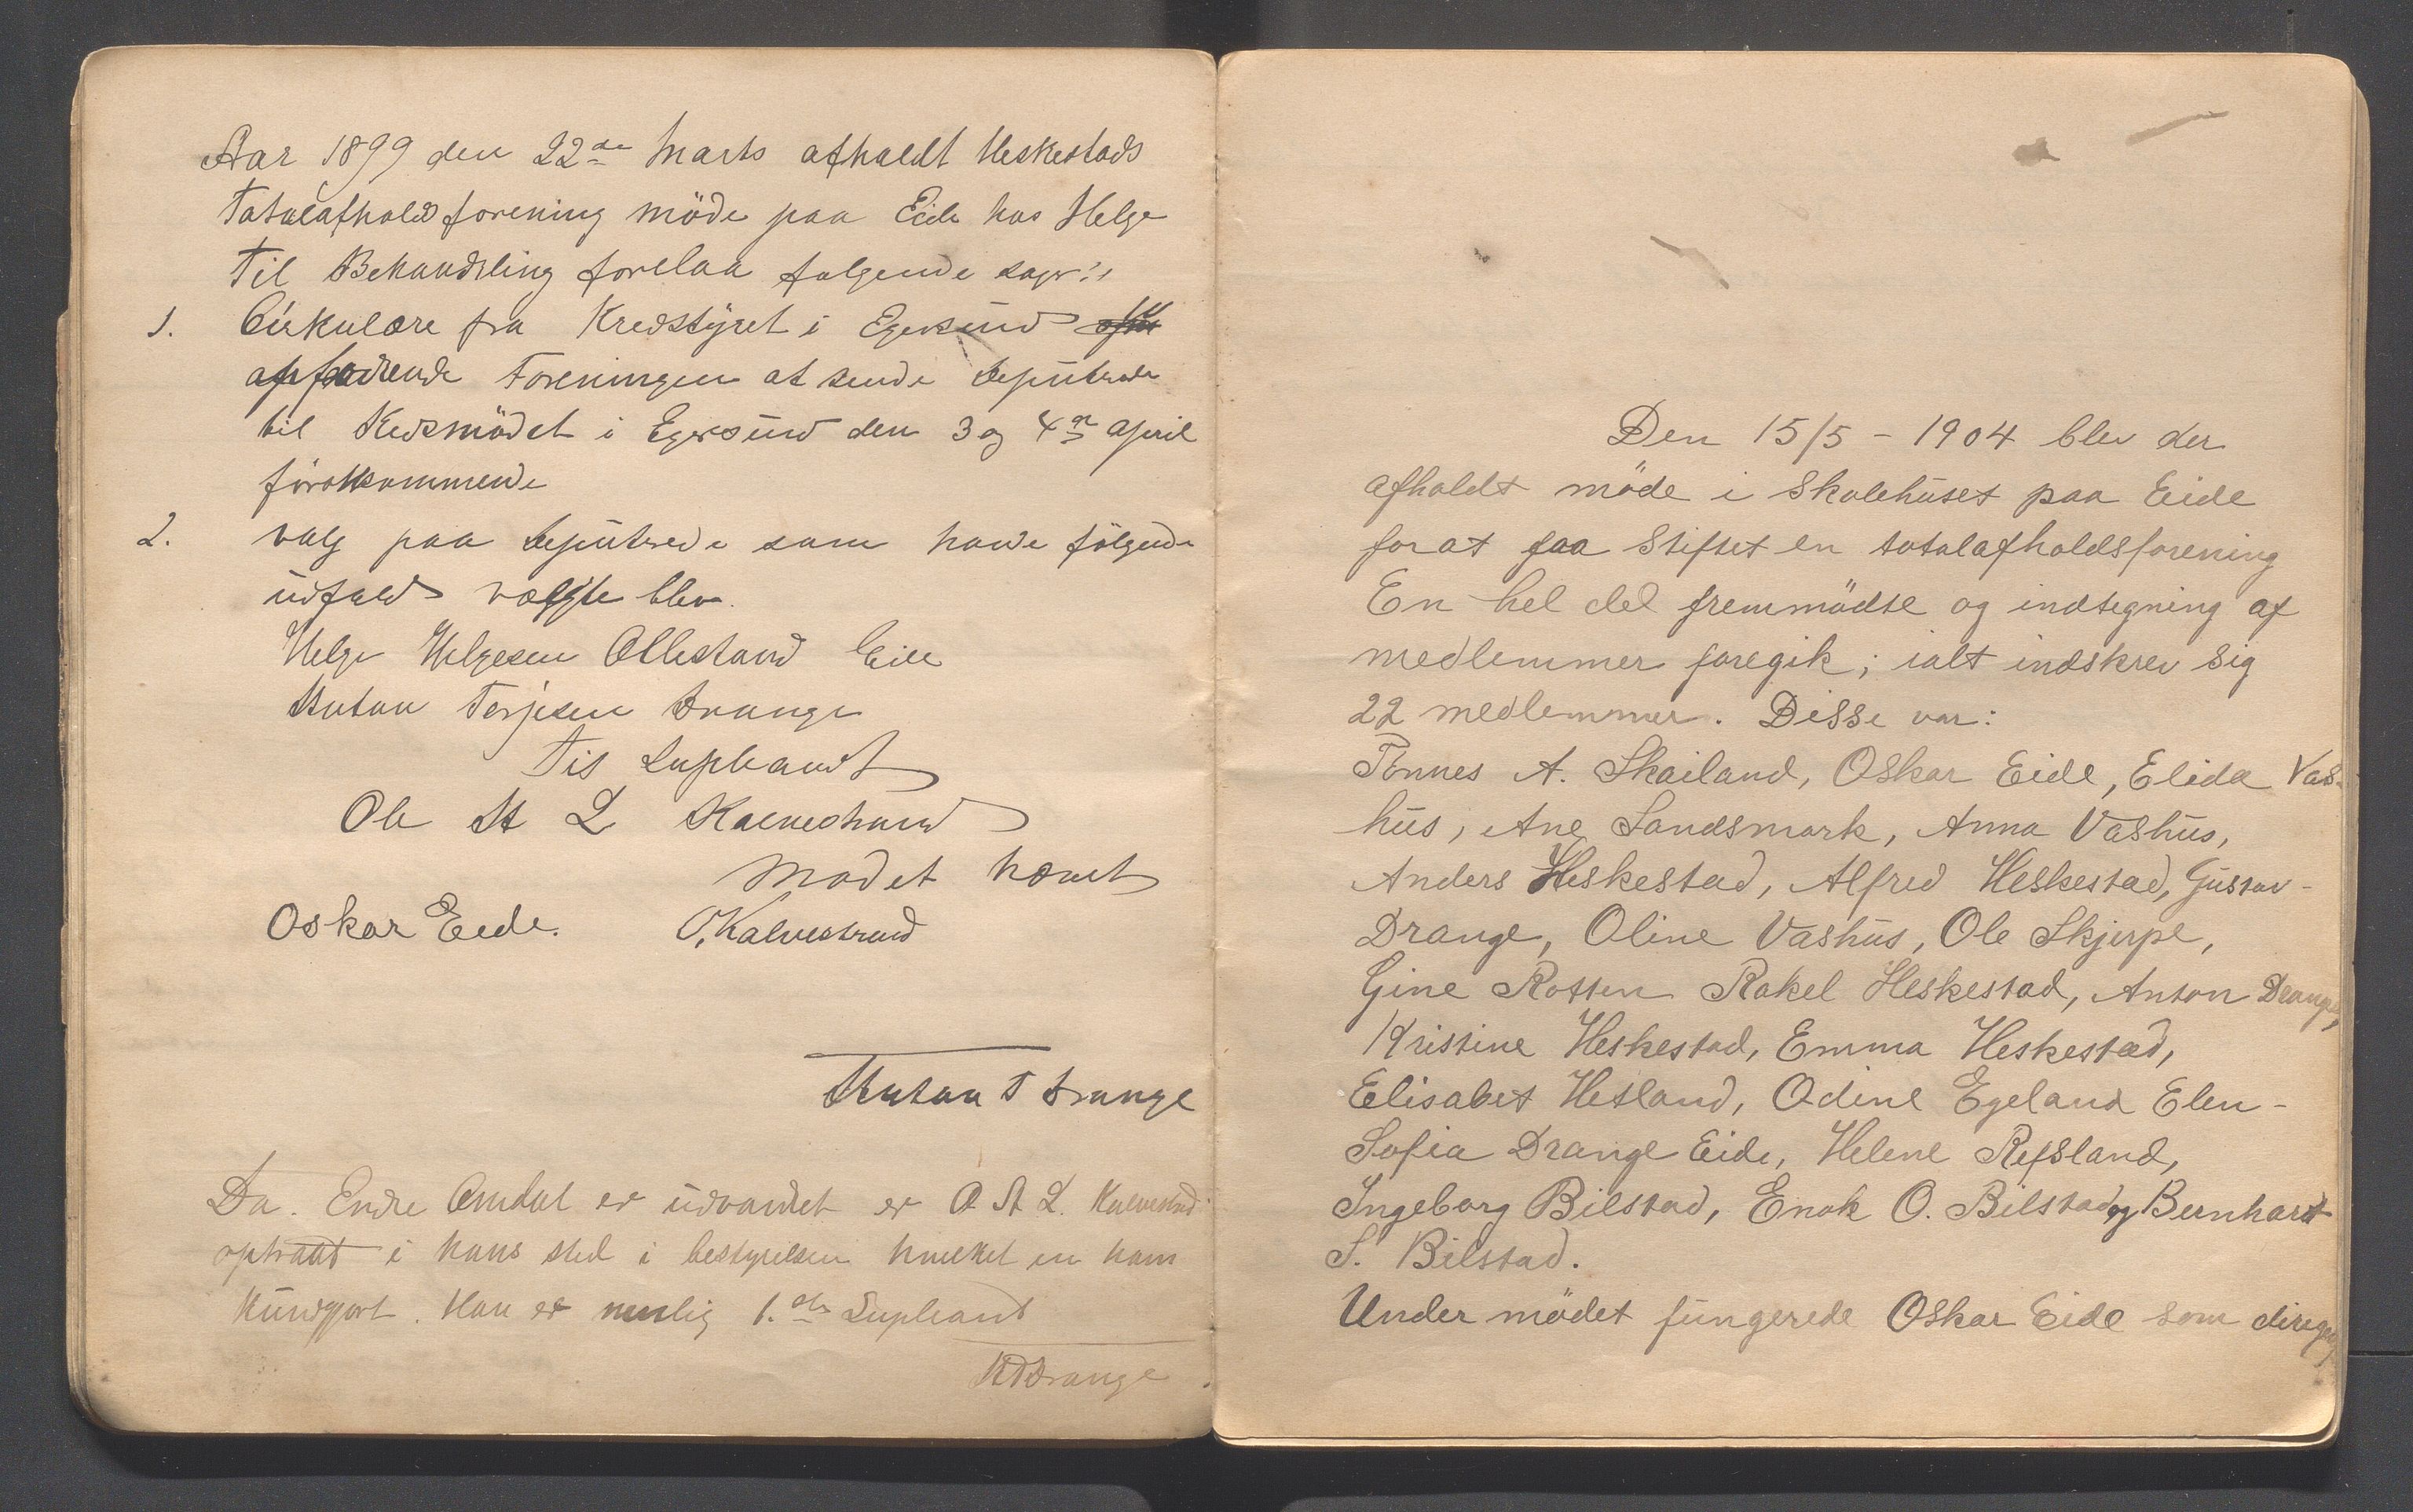 Aar 1899 den 22de Marts afholdt Heskestads
Totalafholdsforening möde paa Eide hos Helge
Til Behandling forelaa følgende sager:
1. Cirkulære fra Kredsstyret i Egersund
opfordrende Foreningen at sende deputerede
til Kredsmödet i Egersund den 3 og 4de April
förstkommende
2. valg paa deputerede som havde fölgende
udfald valgte blev.
Helge Helgesen Ollestand Eide
Anton Terjesen Drange
Til Supleandt
Ole A L Kalvestrand
Mödet hævet
Oskar Eide. O. Kalvestrand
Anton T Drange
Da. Endre Omdal er udvandret er O A L. Kalvestrand
optraadt i hans sted i bestyrelsen hvilket er ham
kundgjort. Han er nemlig 1.ste Supleant
ATDrange
Den 15/5 - 1904 blev der
afholdt möde i Skolehuset paa Eide
for at faa Stiftet en totalafholdsforening
En hel del fremmödte og indtegning af
medlemmer foregik; ialt indskrev sig
22 medlemmer. Disse var:
Tönnes A. Skailand, Oskar Eide, Elida Vas-
hus, Ane Landsmark, Anna Vashus,
Anders Heskestad, Alfred Heskestad, Gustav-
Drange, Oline Vashus, Ole Skjerpe,
Gine Rotten Rakel Heskestad, Anton Drange,
Kristine Heskestad, Emma Heskestad,
Elisabet Hetland, Odine Egeland Elen-
Sofia Drange Eide, Helene Refsland,
Ingeborg Bilstad, Enok O. Bilstad og Bernhard
S. Bilstad.
Under mödet fungerede Oskar Eide som dirigent